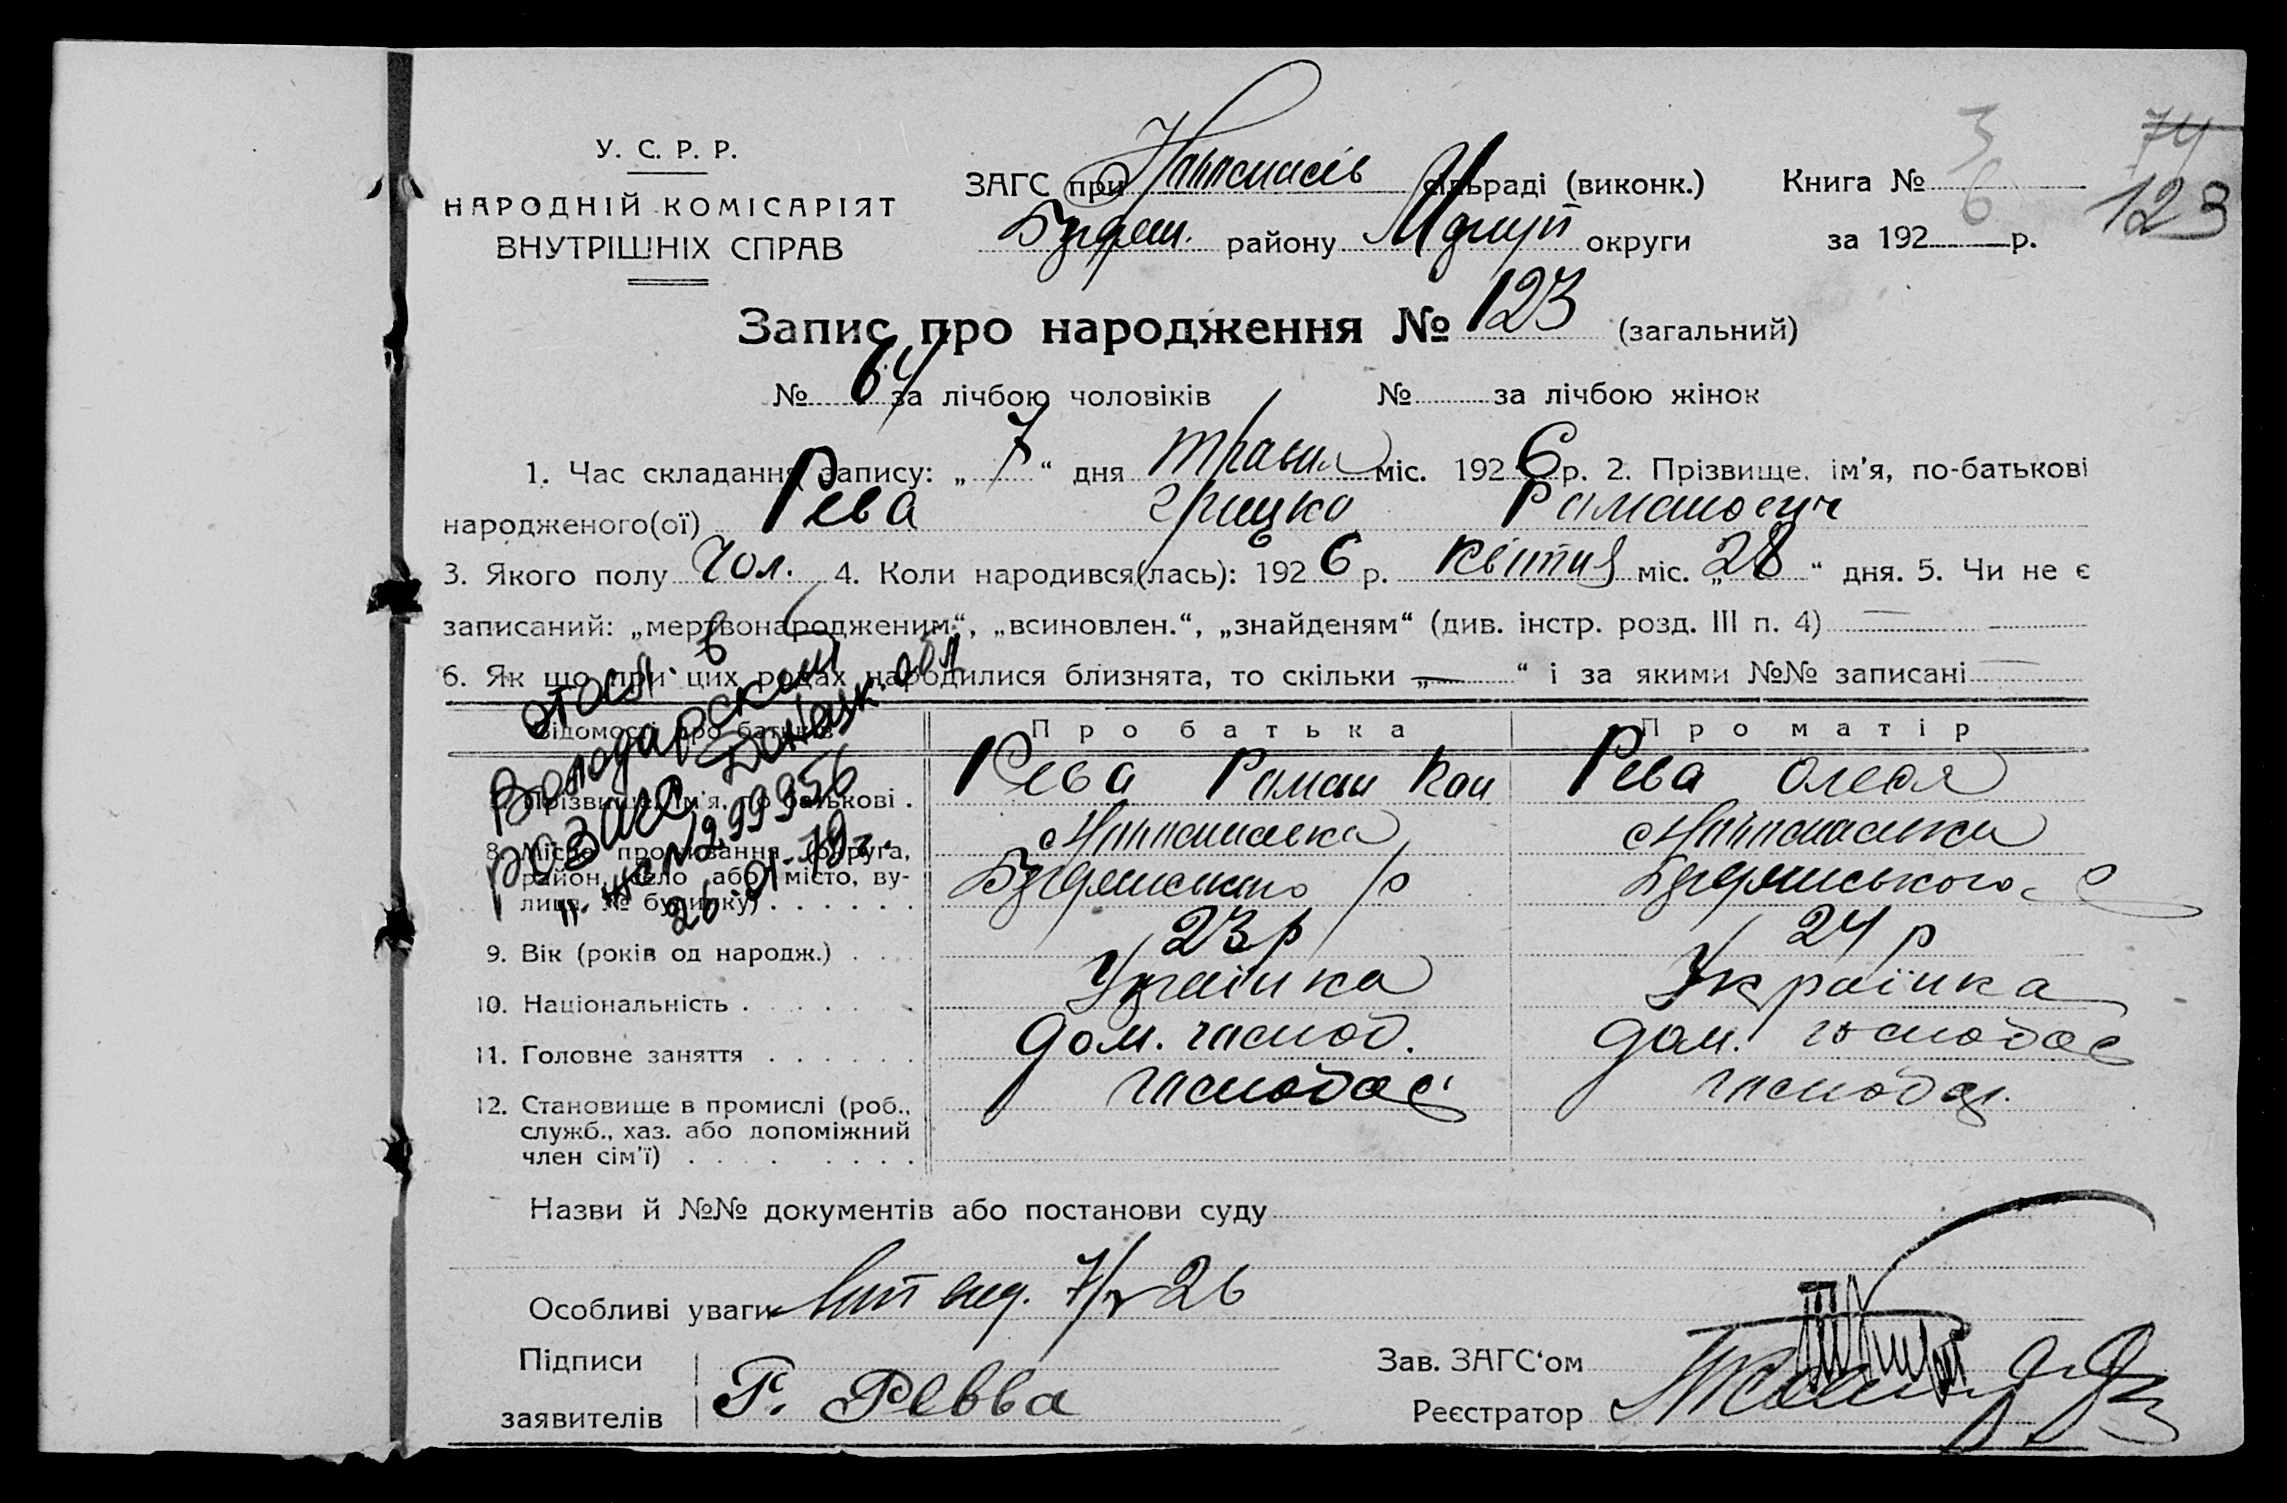 У. С. Р. Р.
НАРОДНІЙ КОМІСАРІЯТ
ВНУТРІШНІХ СПРАВ
ЗАГС при сільраді (виконк.)
району округи
Книга № 3
за 192 6 р.
74
123
Запис про народження № 123 (загальний)
№ 64 за лічбою чоловіків № за лічбою жінок
1. Час складання запису: „ 7 “ дня травня міс. 192 6 р. 2. Прізвище, ім'я, по-батькові
народженого(ої) Рева Грицко Романович
3. Якого полу Чол. 4. Коли народився(лась): 192 6 р. квітня міс. „ 28 “ дня. 5. Чи не є
записаний: „мертвонародженим“, „всиновлен.“, „знайденям“ (див. інстр. розд. III п. 4) —
6. Як що при цих родах народилися близнята, то скільки „ — “ і за якими №№ записані —
Відомості про батьків Про батька Про матір
7. Прізвище, ім'я, по батькові . Рева Роман Рева Олена
8. Місце проживання (округа,
район, село або місто, ву-
лиця, № будинку)
9. Вік (років од народж.) 23 р 24 р
10. Національність Українка Українка
11. Головне заняття дом. господ. дом. господар
12. Становище в промислі (роб.,
служб., хаз. або допоміжний
член сім'ї) господар господар.
в
Володарский
Донецк. обл
2999956
26 01 79г.
Назви й №№ документів або постанови суду
Особливі уваги Вит вид. 7/V 26
Підписи
заявителів Р. Ревва
Зав. ЗАГС'ом
Реєстратор